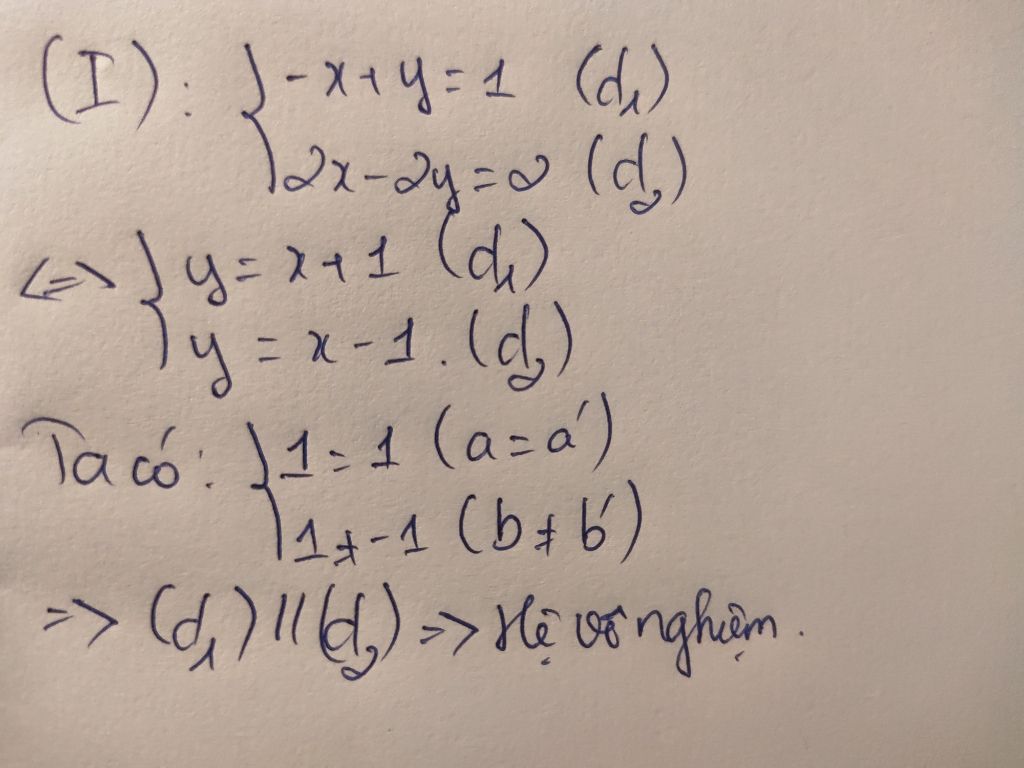 (I): { -x+y=1 (d₁)
2x-2y=2 (d₂)
<=> { y=x+1 (d₁)
y=x-1. (d₂)
Ta có: { 1=1 (a=a')
1≠-1 (b≠b')
=> (d₁)//(d₂) => Hệ vô nghiệm.